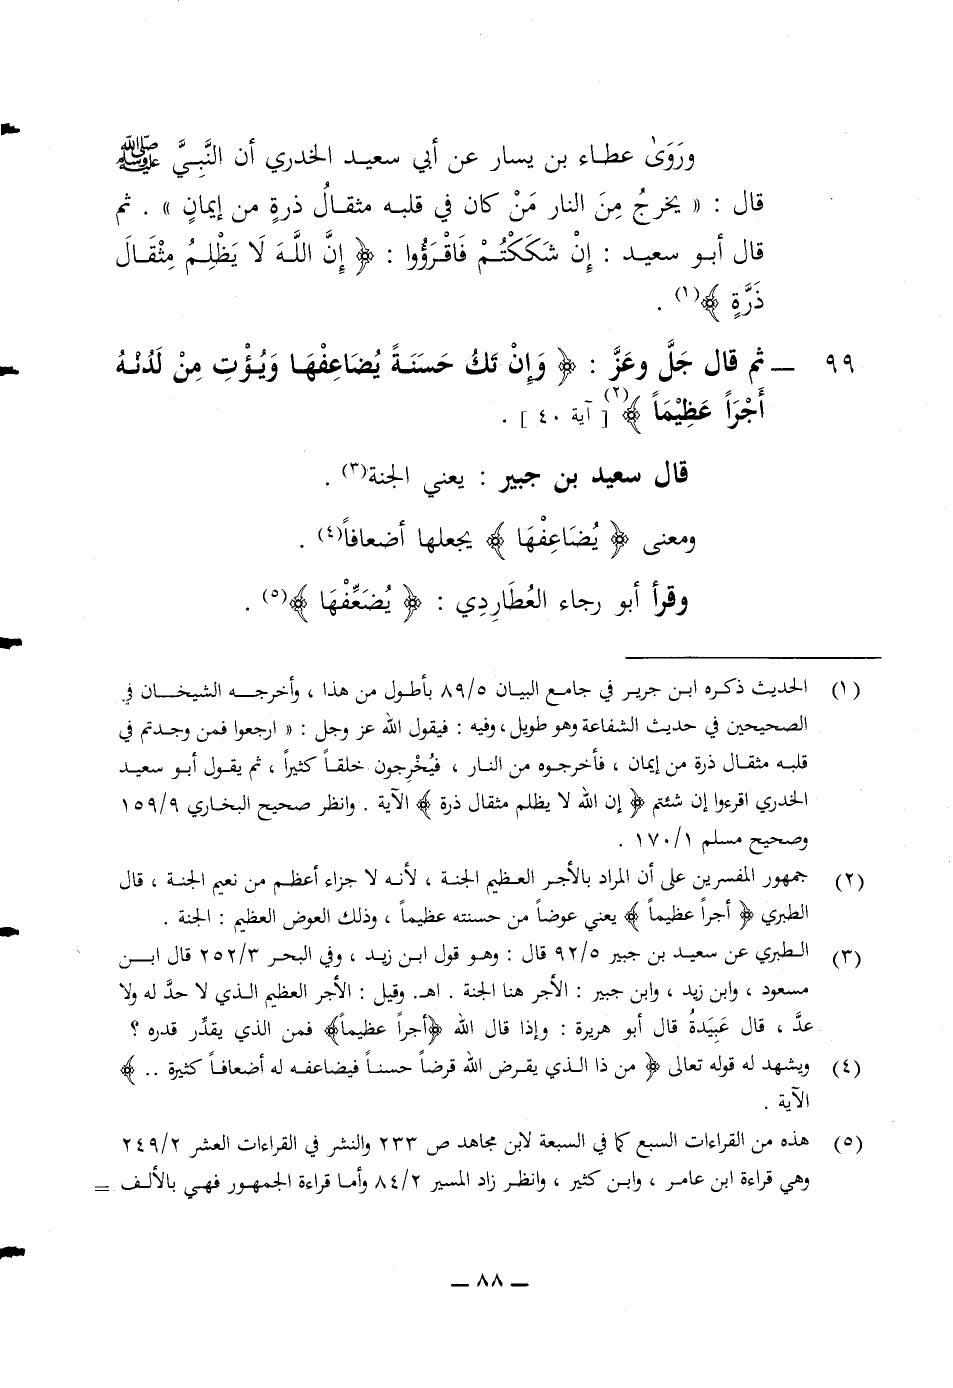 ورَوَىٰ عطاء بن يسار عن أبي سعيد الخدري أن النَّبيَّ ﷺ
قال : « يخرجُ مِنَ النار مَنْ كان في قلبه مثقالُ ذرةٍ من إيمانٍ » . ثم
قال أبو سعيد : إنْ شَكَكْتُمْ فَاقْرَؤُوا : ﴿ إِنَّ اللَّهَ لَا يَظْلِمُ مِثْقَالَ
ذَرَّةٍ ﴾(١) .
٩٩ ـ ثم قال جَلَّ وعَزَّ : ﴿ وَإِنْ تَكُ حَسَنَةً يُضَاعِفْهَا وَيُؤْتِ مِنْ لَدُنْهُ
أَجْرَاً عَظِيْمَاً ﴾(٢) [ آية ٤٠ ] .
قال سعيد بن جبير : يعني الجنة(٣) .
ومعنى ﴿ يُضَاعِفْهَا ﴾ يجعلها أضعافاً(٤) .
وقرأ أبو رجاء العُطَارِدِي : ﴿ يُضَعِّفْهَا ﴾(٥) .
(١) الحديث ذكره ابن جرير في جامع البيان ٨٩/٥ بأطول من هذا ، وأخرجه الشيخان في
الصحيحين في حديث الشفاعة وهو طويل ، وفيه : فيقول الله عز وجل : « ارجعوا فمن وجدتم في
قلبه مثقال ذرة من إيمان ، فأخرجوه من النار ، فيُخْرِجون خلقاً كثيراً ، ثم يقول أبو سعيد
الخدري اقرءوا إن شئتم ﴿ إن الله لا يظلم مثقال ذرة ﴾ الآية . وانظر صحيح البخاري ١٥٩/٩
وصحيح مسلم ١٧٠/١ .
(٢) جمهور المفسرين على أن المراد بالأجر العظيم الجنة ، لأنه لا جزاء أعظم من نعيم الجنة ، قال
الطبري ﴿ أجراً عظيماً ﴾ يعني عوضاً من حسنته عظيماً ، وذلك العوض العظيم : الجنة .
(٣) الطبري عن سعيد بن جبير ٩٢/٥ قال : وهو قول ابن زيد ، وفي البحر ٢٥٢/٣ قال ابن
مسعود ، وابن زيد ، وابن جبير : الأجر هنا الجنة . اهـ. وقيل : الأجر العظيم الذي لا حدَّ له ولا
عدَّ ، قال عَبِيَدةُ قال أبو هريرة : وإذا قال الله ﴿أجراً عظيماً﴾ فمن الذي يقدِّر قدره ؟
(٤) ويشهد له قوله تعالى ﴿ من ذا الذي يقرض الله قرضاً حسناً فيضاعفه له أضعافاً كثيرة .. ﴾
الآية .
(٥) هذه من القراءات السبع كما في السبعة لابن مجاهد ص ٢٣٣ والنشر في القراءات العشر ٢٤٩/٢
وهي قراءة ابن عامر ، وابن كثير ، وانظر زاد المسير ٨٤/٢ وأما قراءة الجمهور فهي بالألف =
ـ ٨٨ ـ